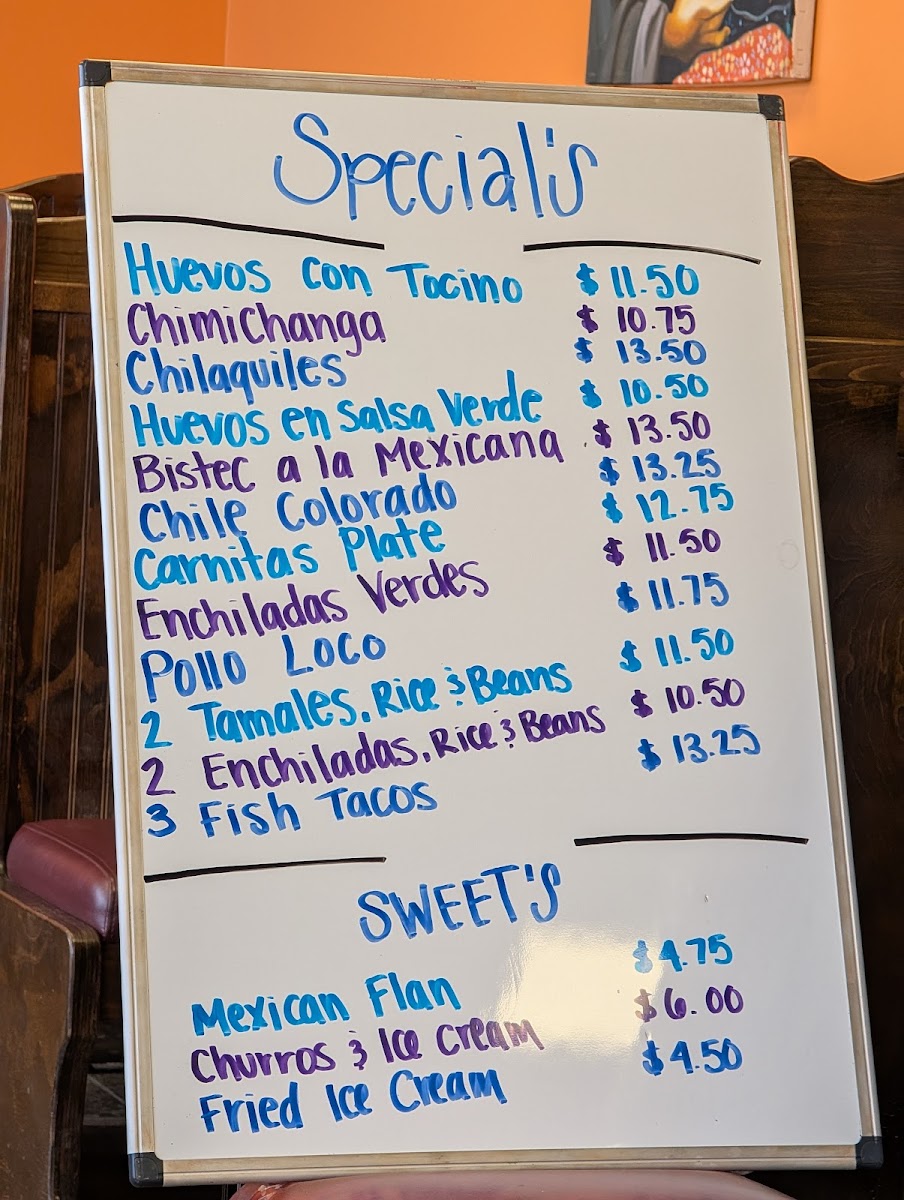 Special's
Huevos con Tocino $ 11.50
Chimichanga $ 10.75
Chilaquiles $ 13.50
Huevos en Salsa Verde $ 10.50
Bistec a la Mexicana $ 13.50
Chile Colorado $ 13.25
Carnitas Plate $ 12.75
Enchiladas Verdes $ 11.50
Pollo Loco $ 11.75
2 Tamales, Rice & Beans $ 11.50
2 Enchiladas, Rice & Beans $ 10.50
3 Fish Tacos $ 13.25
SWEET'S
Mexican Flan $4.75
Churros & Ice Cream $6.00
Fried Ice Cream $4.50